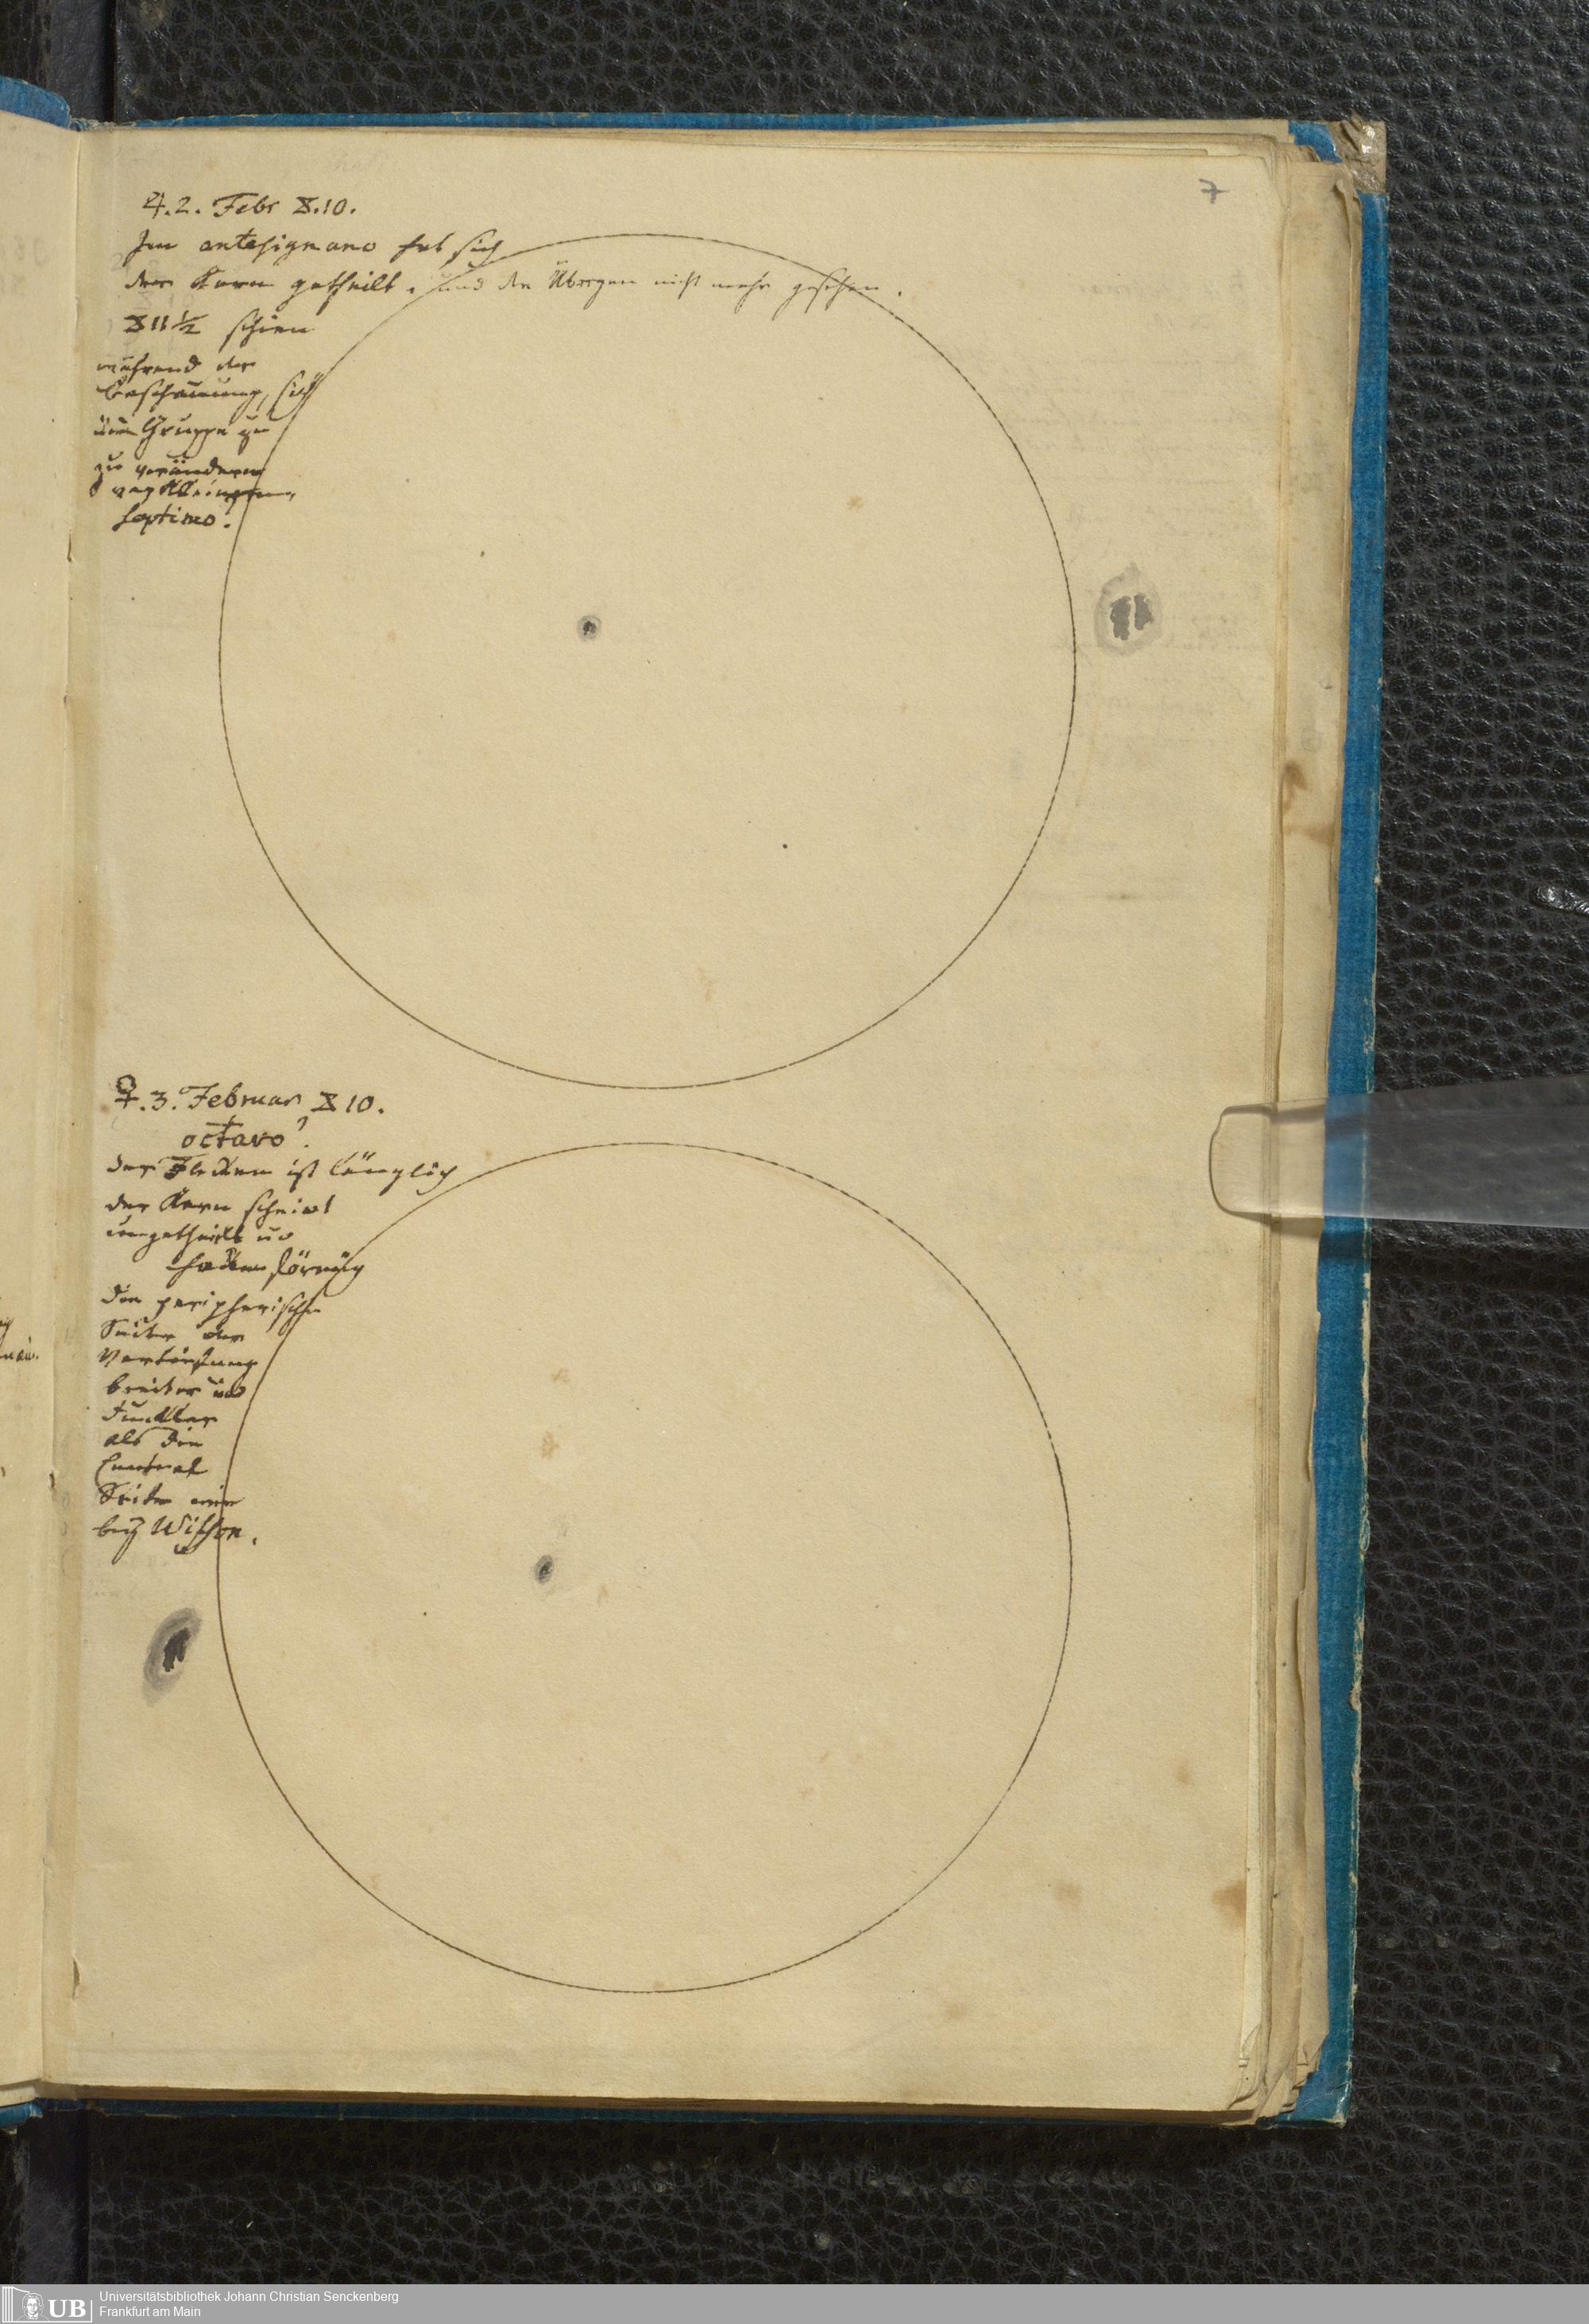 7
♃. 2. Febr X.10.
Im antesignano hat sich
der Kern getheilt. und die Übrigen nicht mehr gesehen.
X 11 ½ schien
während der
Beschauung, sich
die Gruppe zu
zu verändern
septimo.
♀. 3. Februar X 10.
octavo?
der Flecken ist länglich
der Kern scheint
ungetheilt und
die peripherische
Seite der
breiter und
dunkler
als die
Central
Seite wie
bey Wilson.
UB Universitätsbibliothek Johann Christian Senckenberg
Frankfurt am Main